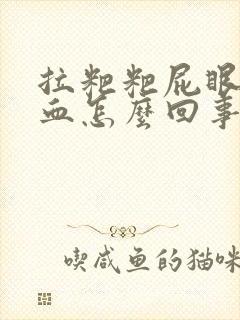 拉粑粑屁眼
血怎麼回事
喫咸鱼的猫咪